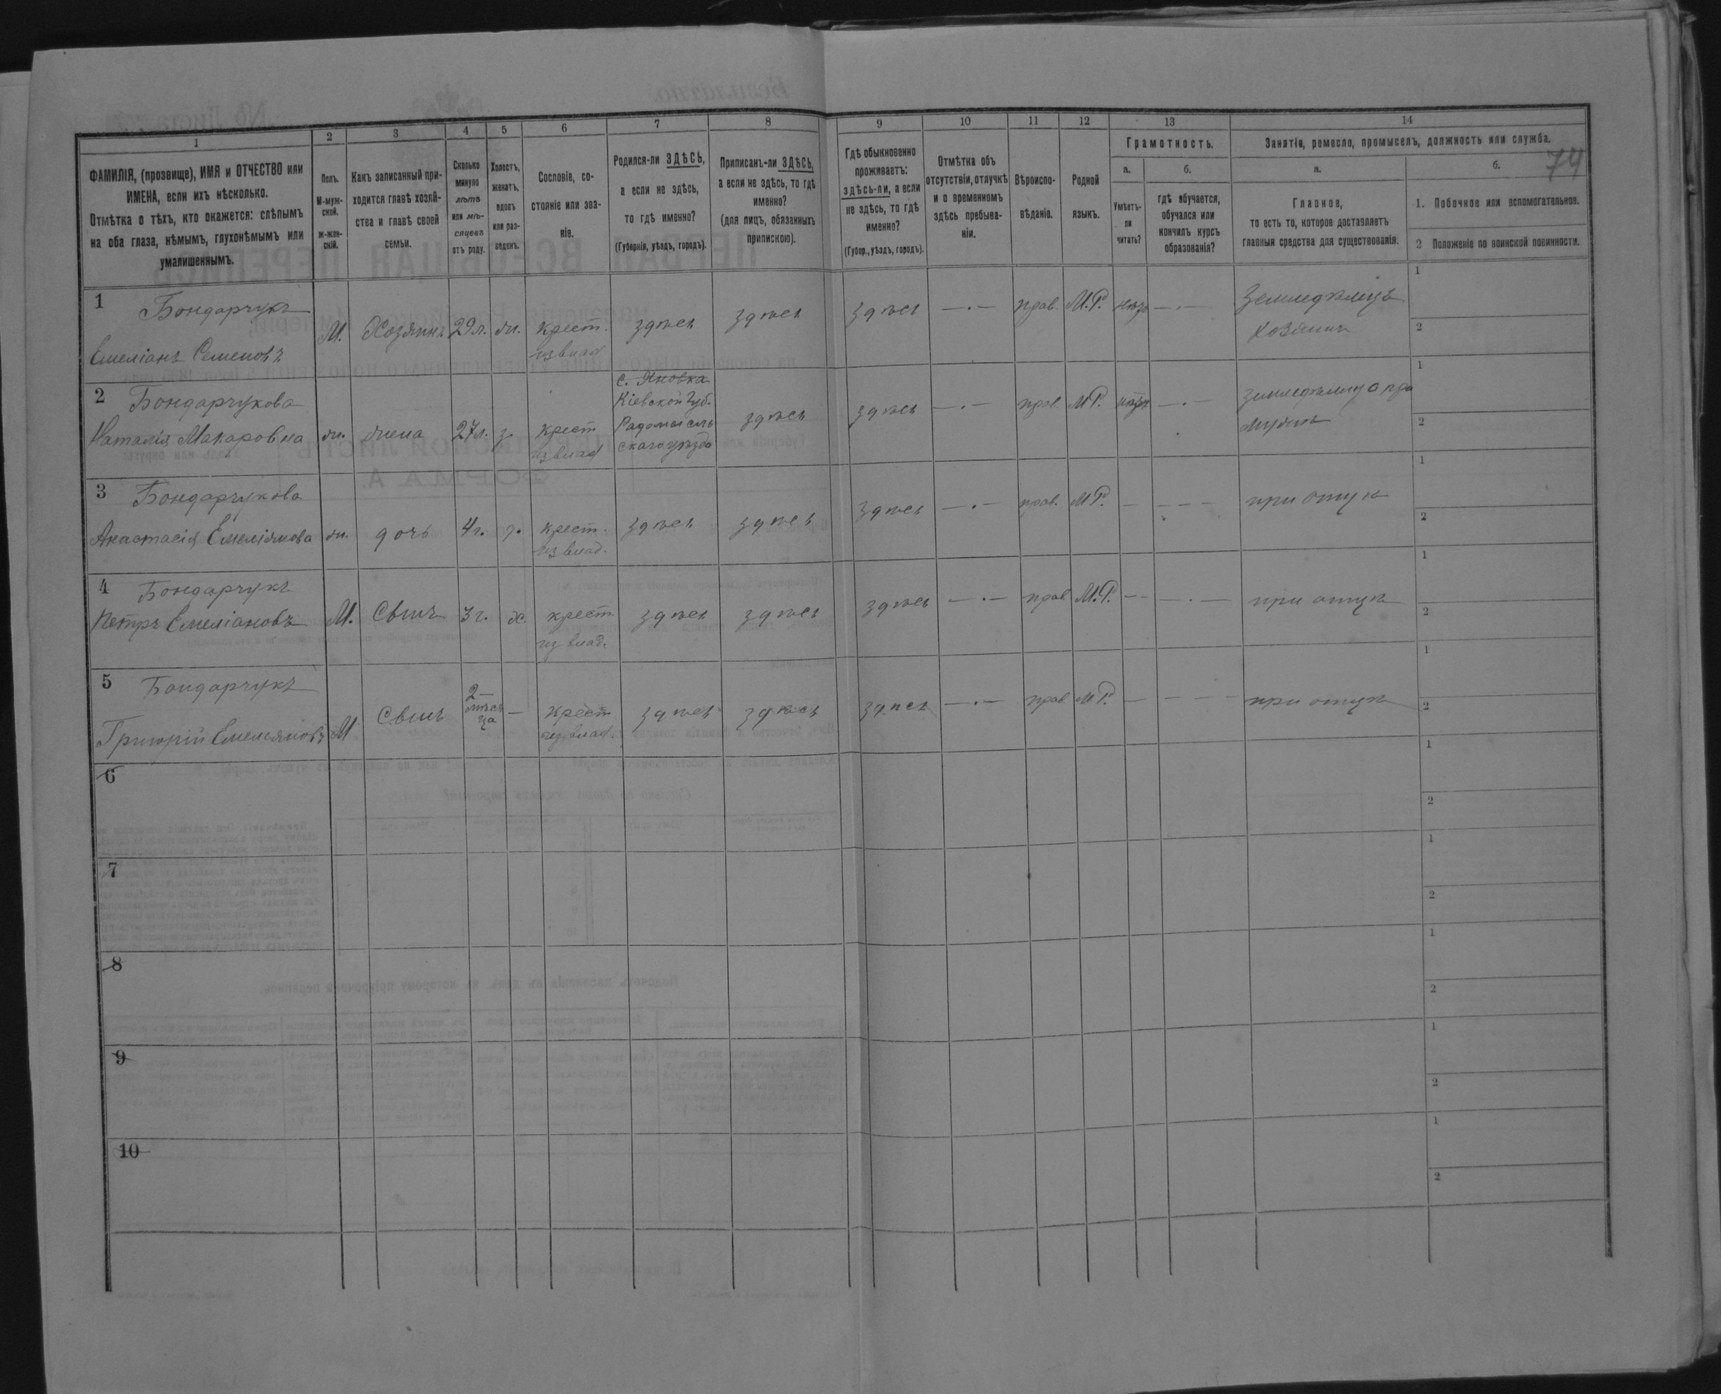 74
1 2 3 4 5 6 7 8 9 10 11 12 13 14
ФАМИЛІЯ, (прозвище), ИМЯ и ОТЧЕСТВО или
ИМЕНА, если ихъ нѣсколько.
Отмѣтка о тѣхъ, кто окажется: слѣпымъ
на оба глаза, нѣмымъ, глухонѣмымъ или
умалишеннымъ.
Полъ.
М-муж-
ской.
ж-жен-
скій.
Какъ записанный при-
ходится главѣ хозяй-
ства и главѣ своей
семьи.
Сколько
минуло
лѣтъ
или мѣ-
сяцевъ
отъ роду.
Холостъ,
женатъ,
вдовъ
или раз-
веденъ.
Сословіе, со-
стояніе или зва-
ніе.
Родился-ли ЗДѢСЬ,
а если не здѣсь,
то гдѣ именно?
(Губернія, уѣздъ, городъ).
Приписанъ-ли ЗДѢСЬ,
а если не здѣсь, то гдѣ
именно?
(для лицъ, обязанныхъ
припискою).
Гдѣ обыкновенно
проживаетъ:
здѣсь-ли, а если
не здѣсь, то гдѣ
именно?
(Губер., уѣздъ, городъ).
Отмѣтка объ
отсутствіи, отлучкѣ
и о временномъ
здѣсь пребыва-
ніи.
Вѣроиспо-
вѣданіе.
Родной
языкъ.
Грамотность.
а.
Умѣетъ-
ли
читать?
б.
гдѣ обучается,
обучался или
кончилъ курсъ
образованія?
Занятіе, ремесло, промыселъ, должность или служба.
а.
Главное,
то есть то, которое доставляетъ
главныя средства для существованія.
б.
1. Побочное или вспомогательное.
2 Положеніе по воинской повинности.
1 Бондарчукъ
Емеліанъ Семеновъ М. Хозяинъ 29 л. жн. крест. здѣсь здѣсь здѣсь —.— прав. М.Р. —.— Земледѣлецъ
из влад. хозяинъ
1
2
2 Бондарчукова
Наталія Макаровна жн. жена 27 л. з. крест.
из влад
с. Яновка
Кіевской Губ.
Радомысль
скаго уѣзда
здѣсь здѣсь —.— прав. М.Р. —.—
1
2
3 Бондарчукова
Анастасія Емеліянова жн. дочь 4 г. крест. здѣсь здѣсь здѣсь —.— прав. М.Р. — — — — при отцѣ
из влад.
1
2
4 Бондарчукъ
Петръ Емеліановъ М. Сынъ 3 г. х. крест. здѣсь здѣсь здѣсь —.— прав М.Р. — — —.— при отцѣ
из влад.
1
2
5 Бондарчукъ
Григорій Емельяновъ М Сынъ 2 мѣся
ца — крест здѣсь здѣсь здѣсь —.— прав М.Р. — — — — при отцѣ
из влад.
1
2
6
1
2
7
1
2
8
1
2
9
1
2
10
1
2